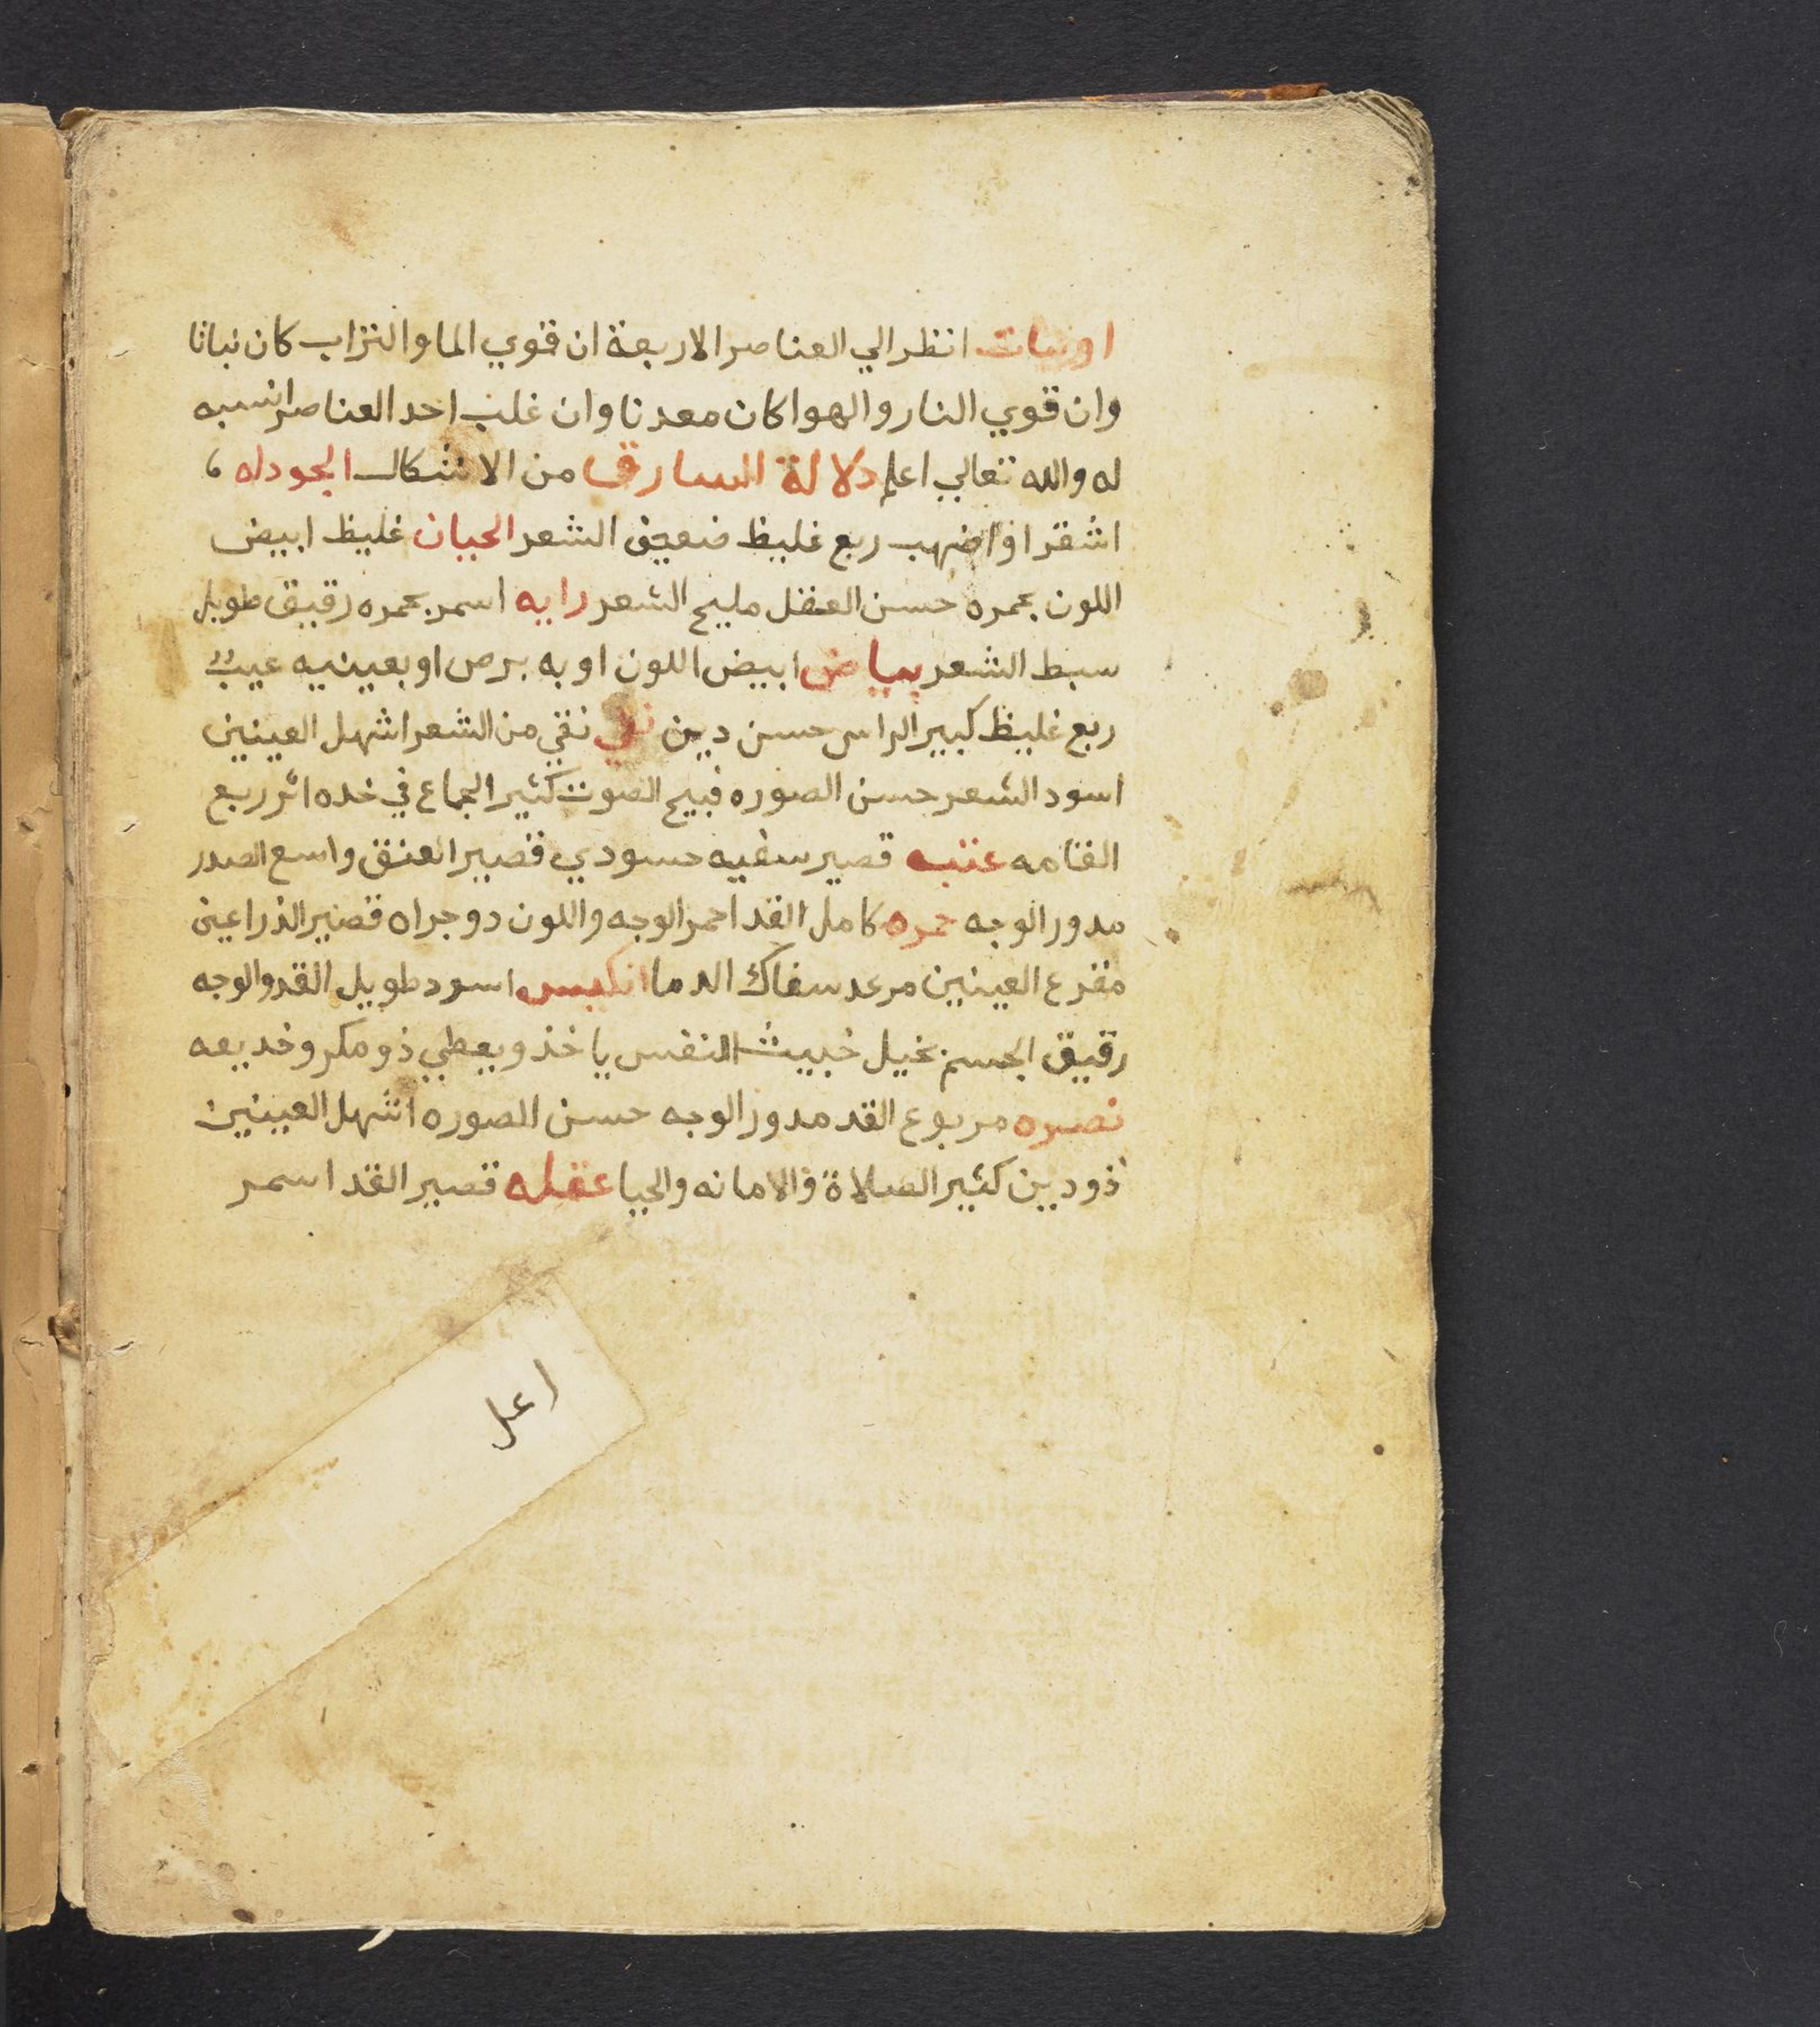 او نبات انظر الي العناصر الاربعة ان قوي الما والتراب كان نباتا
وان قوي النار والهوا كان معدنا وان غلب احد العناصر انسبه
له والله تعالي اعلم دلالة السارق من الاشكال الجودله ،
اشقر او اضهب ربع غليظ ضعيف الشعر الحيان غليظ ابيض
اللون بحمره حسن العقل مليح الشعر رايه اسمر بحمره رقيق طويل
سبط الشعر بياض ابيض اللون او به برص او بعينيه عيب
ربع غليظ كبير الراس حسن دين نقي نقي من الشعر اشهل العينين
اسود الشعر حسن الصوره قبيح الصوت كثير الجماع في خده اثر ربع
القامه عتبه قصير سفيه حسودي قصير العنق واسع الصدر
مدور الوجه حمره كامل القد احمر الوجه واللون دو جراه قصير الذراعين
مفزع العينين مرعد سفاك الدما انكيس اسود طويل القد والوجه
رقيق الجسم بخيل خبيث النفس ياخذ ويعطي ذو مكر وخديعه
نصره مربوع القد مدور الوجه حسن الصوره اشهل العينين
ذو دين كثير الصلاة والامانه والحيا عقله قصير القد اسمر
اعل